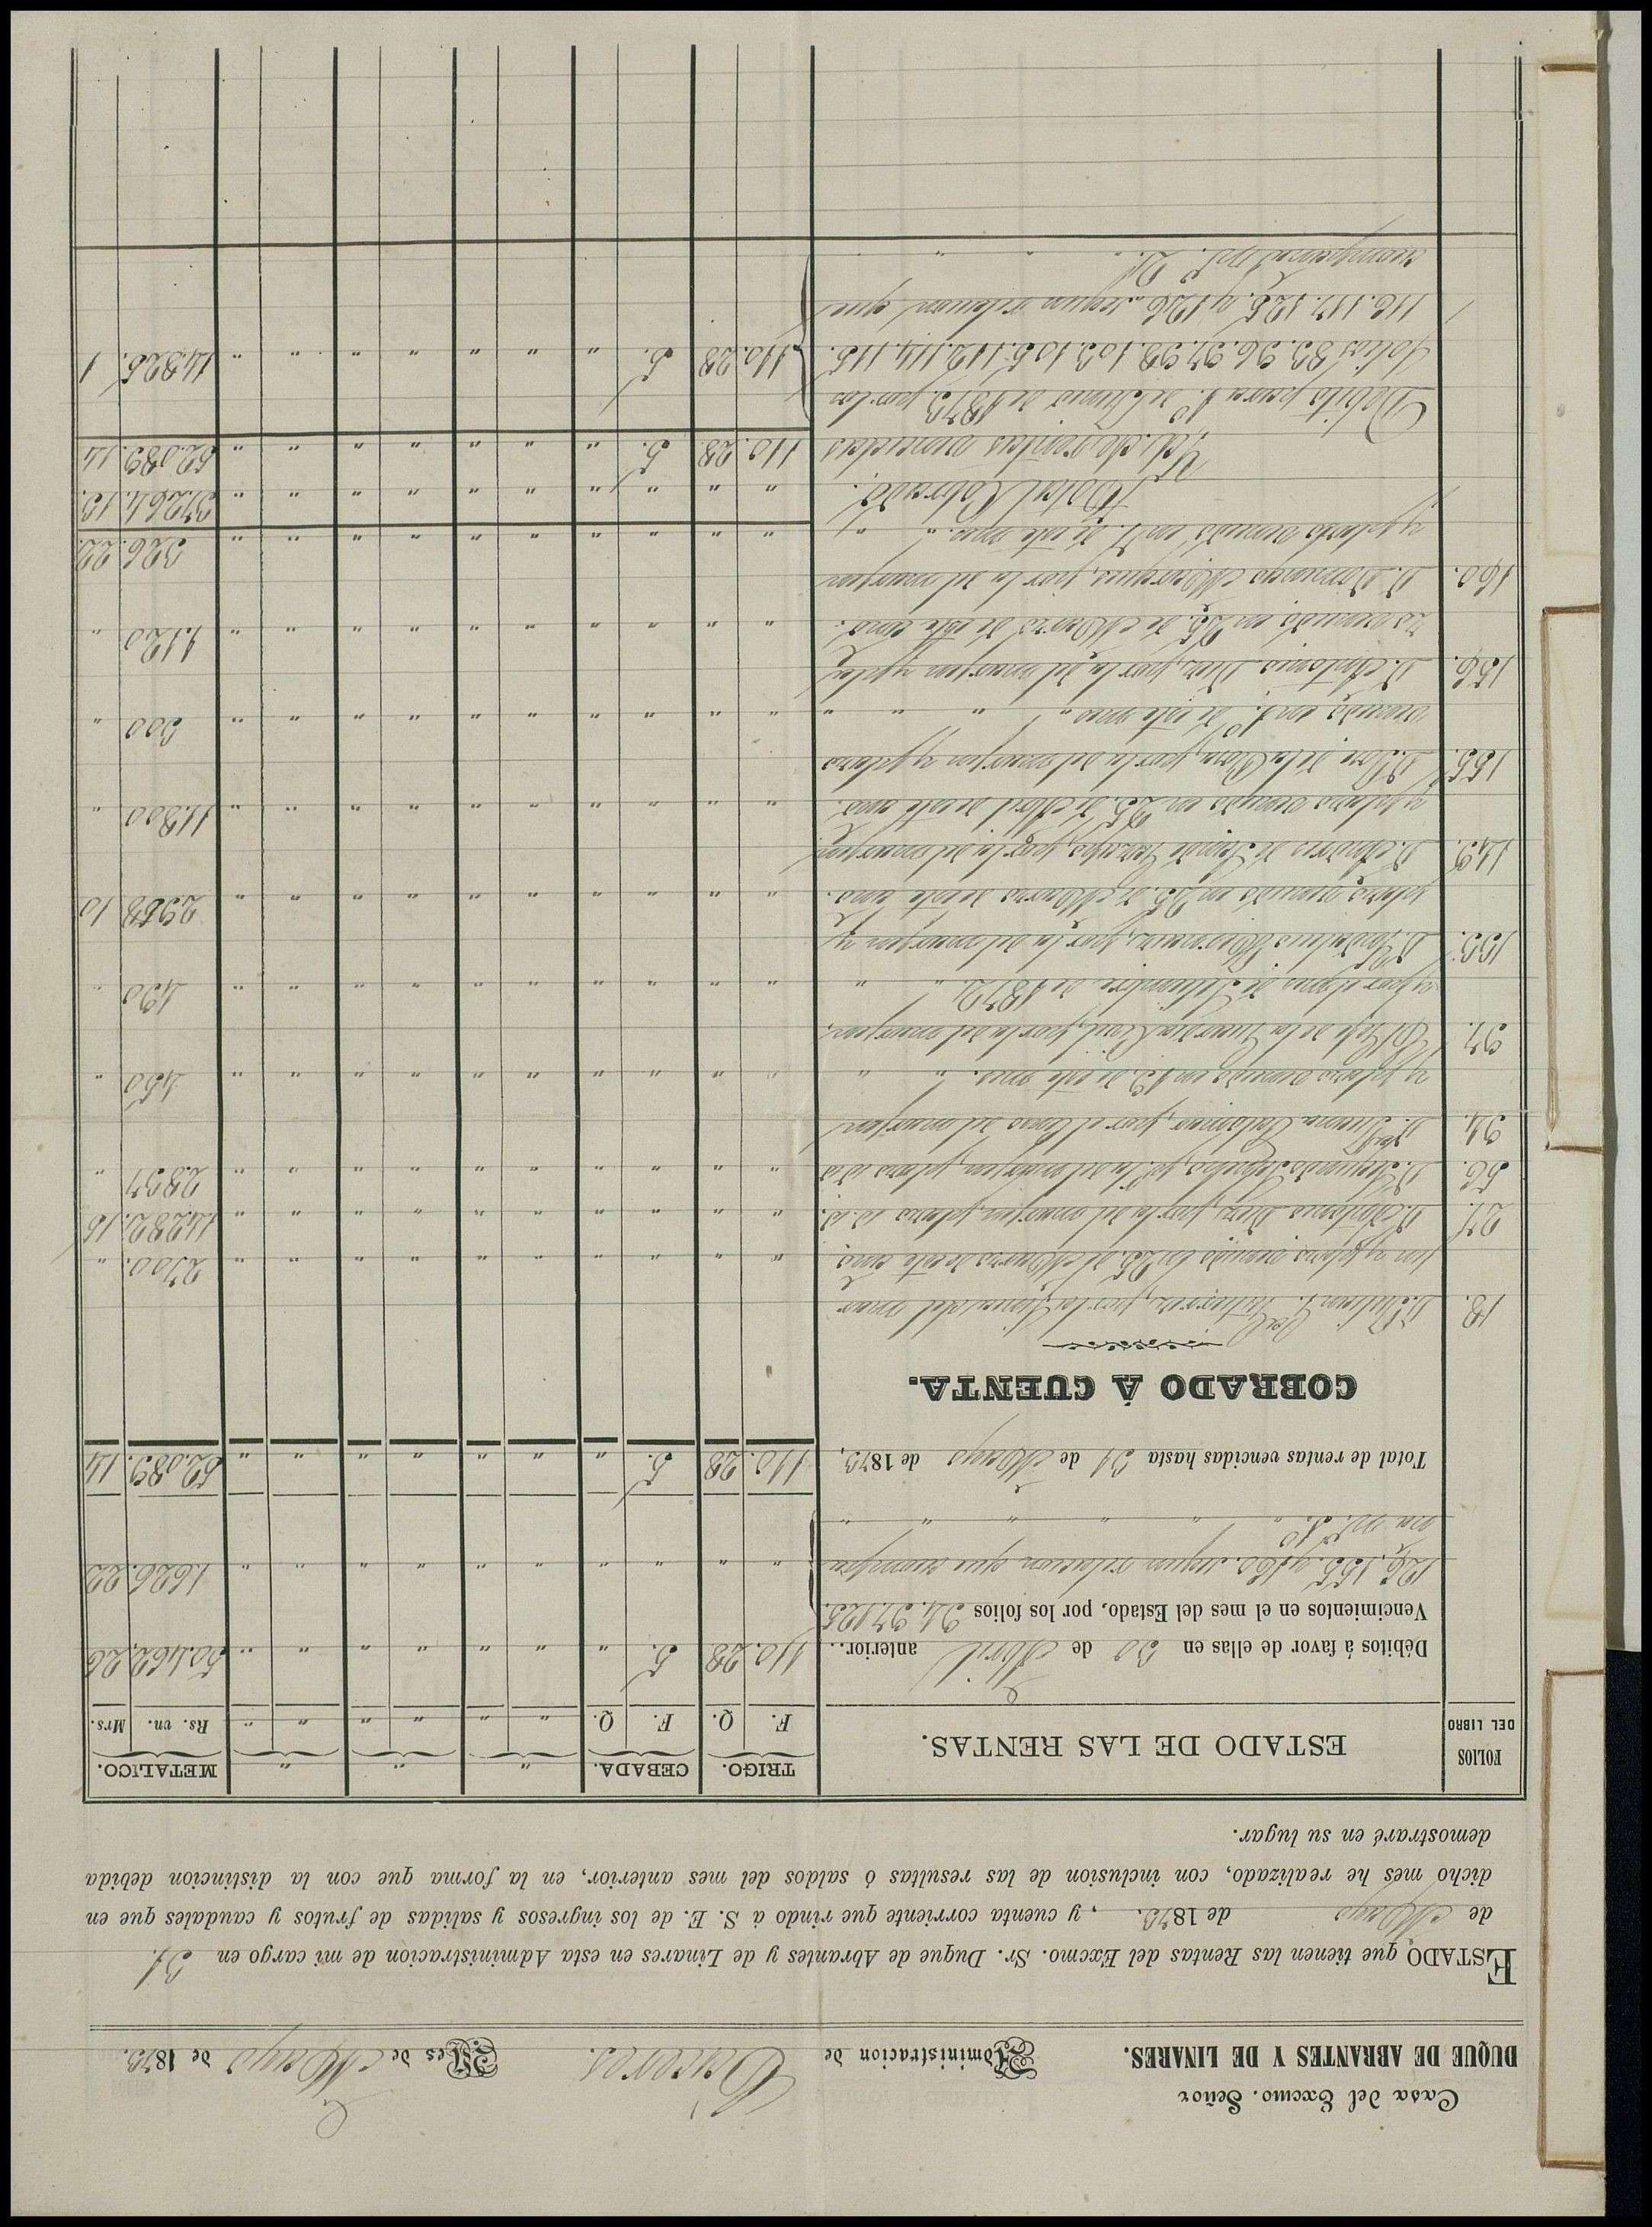 Casa del Excmo. Señor
DUQUE DE ABRANTES Y DE LINARES.
Administracion de Cáceres.
Mes de Mayo de 1873.
ESTADO que tienen las Rentas del Excmo. Sr. Duque de Abrantes y de Linares en esta Administracion de mi cargo en 31.
de Mayo de 1873. , y cuenta corriente que rindo á S. E. de los ingresos y salidas de frutos y caudales que en
dicho mes he realizado, con inclusion de las resultas ó saldos del mes anterior, en la forma que con la distincion debida
demostraré en su lugar.
FOLIOS DEL LIBRO ESTADO DE LAS RENTAS. TRIGO. CEBADA. " " " METALICO.
F. Q. F. Q. " " " " " " Rs. vn. Mrs.
Débitos á favor de ellas en 30 de Abril anterior.. 110. 28 5. " " " " " " " 50.462. 26
Vencimientos en el mes del Estado, por los folios 94. 97. 125.
126. 155. y 160. segun relacion que acompa " " " " " " " " " " 1.626. 22
ña nº. 1º. " " " " "
Total de rentas vencidas hasta 31 de Mayo de 1873. 110. 28 5. " " " " " " " 52.089. 14
COBRADO Á CUENTA.
18. D. Julian F. por la del mar
jen y plazo vencido en 25. de Marzo de este año. " " " " " " " " " " 2700. "
27. D. Antonio Diez, por la del marjen, plazo id. id. " " " " " " " " " " 14.282. 15
56. D. Segundo por la del marjen, plazo idm " " " " " " " " " " 2837 "
94. D. por el censo del marjen
y plazo vencido en 13. de este mes. " " " " " " " " " " " " 450 "
97. El Gefe de la Guardia Civil, por la del marjen
y por el mes de Setiembre de 1872. " " " " " " " " " " " " 490 "
133. D. por la del marjen y
plazo vencido en 25. de Marzo de este año. " " " " " " " " " " 2.958 10
149. D. Andres de por la del marjen
y plazo vencido en 25. de Abril de este año. " " " " " " " " " " 11.800 "
155. D. Jose de la por la del marjen y plazo
vencido en 1º. de este mes. " " " " " " " " " " " " " 300 "
156. D. Antonio Diez, por la del marjen y pla
zo vencido en 25. de Marzo de este año. " " " " " " " " " " 1.120 "
160. D. Domingo Marques, por la del marjen
y plazo vencido en 1º. de este mes. " " " " " " " " " " " " 326. 22.
Total Cobrado. " " " " " " " " " " 37.264. 13.
Yd. de rentas vencidas 110. 28. 5. " " " " " " " 52.089. 14
Débito para 1º. de Junio de 1873. por los
folios 83. 96. 97. 98. 103. 105. 112. 114. 115. 110. 28 5. " " " " " " " 14.825. 1
116. 117. 125. y 126. segun relacion que
acompaña nº. 2º. " " " "